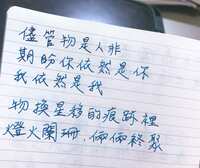 儘管物是人非
期盼你依然是你
我依然是我
物換星移的痕跡裡
燈火闌珊,倆倆終聚